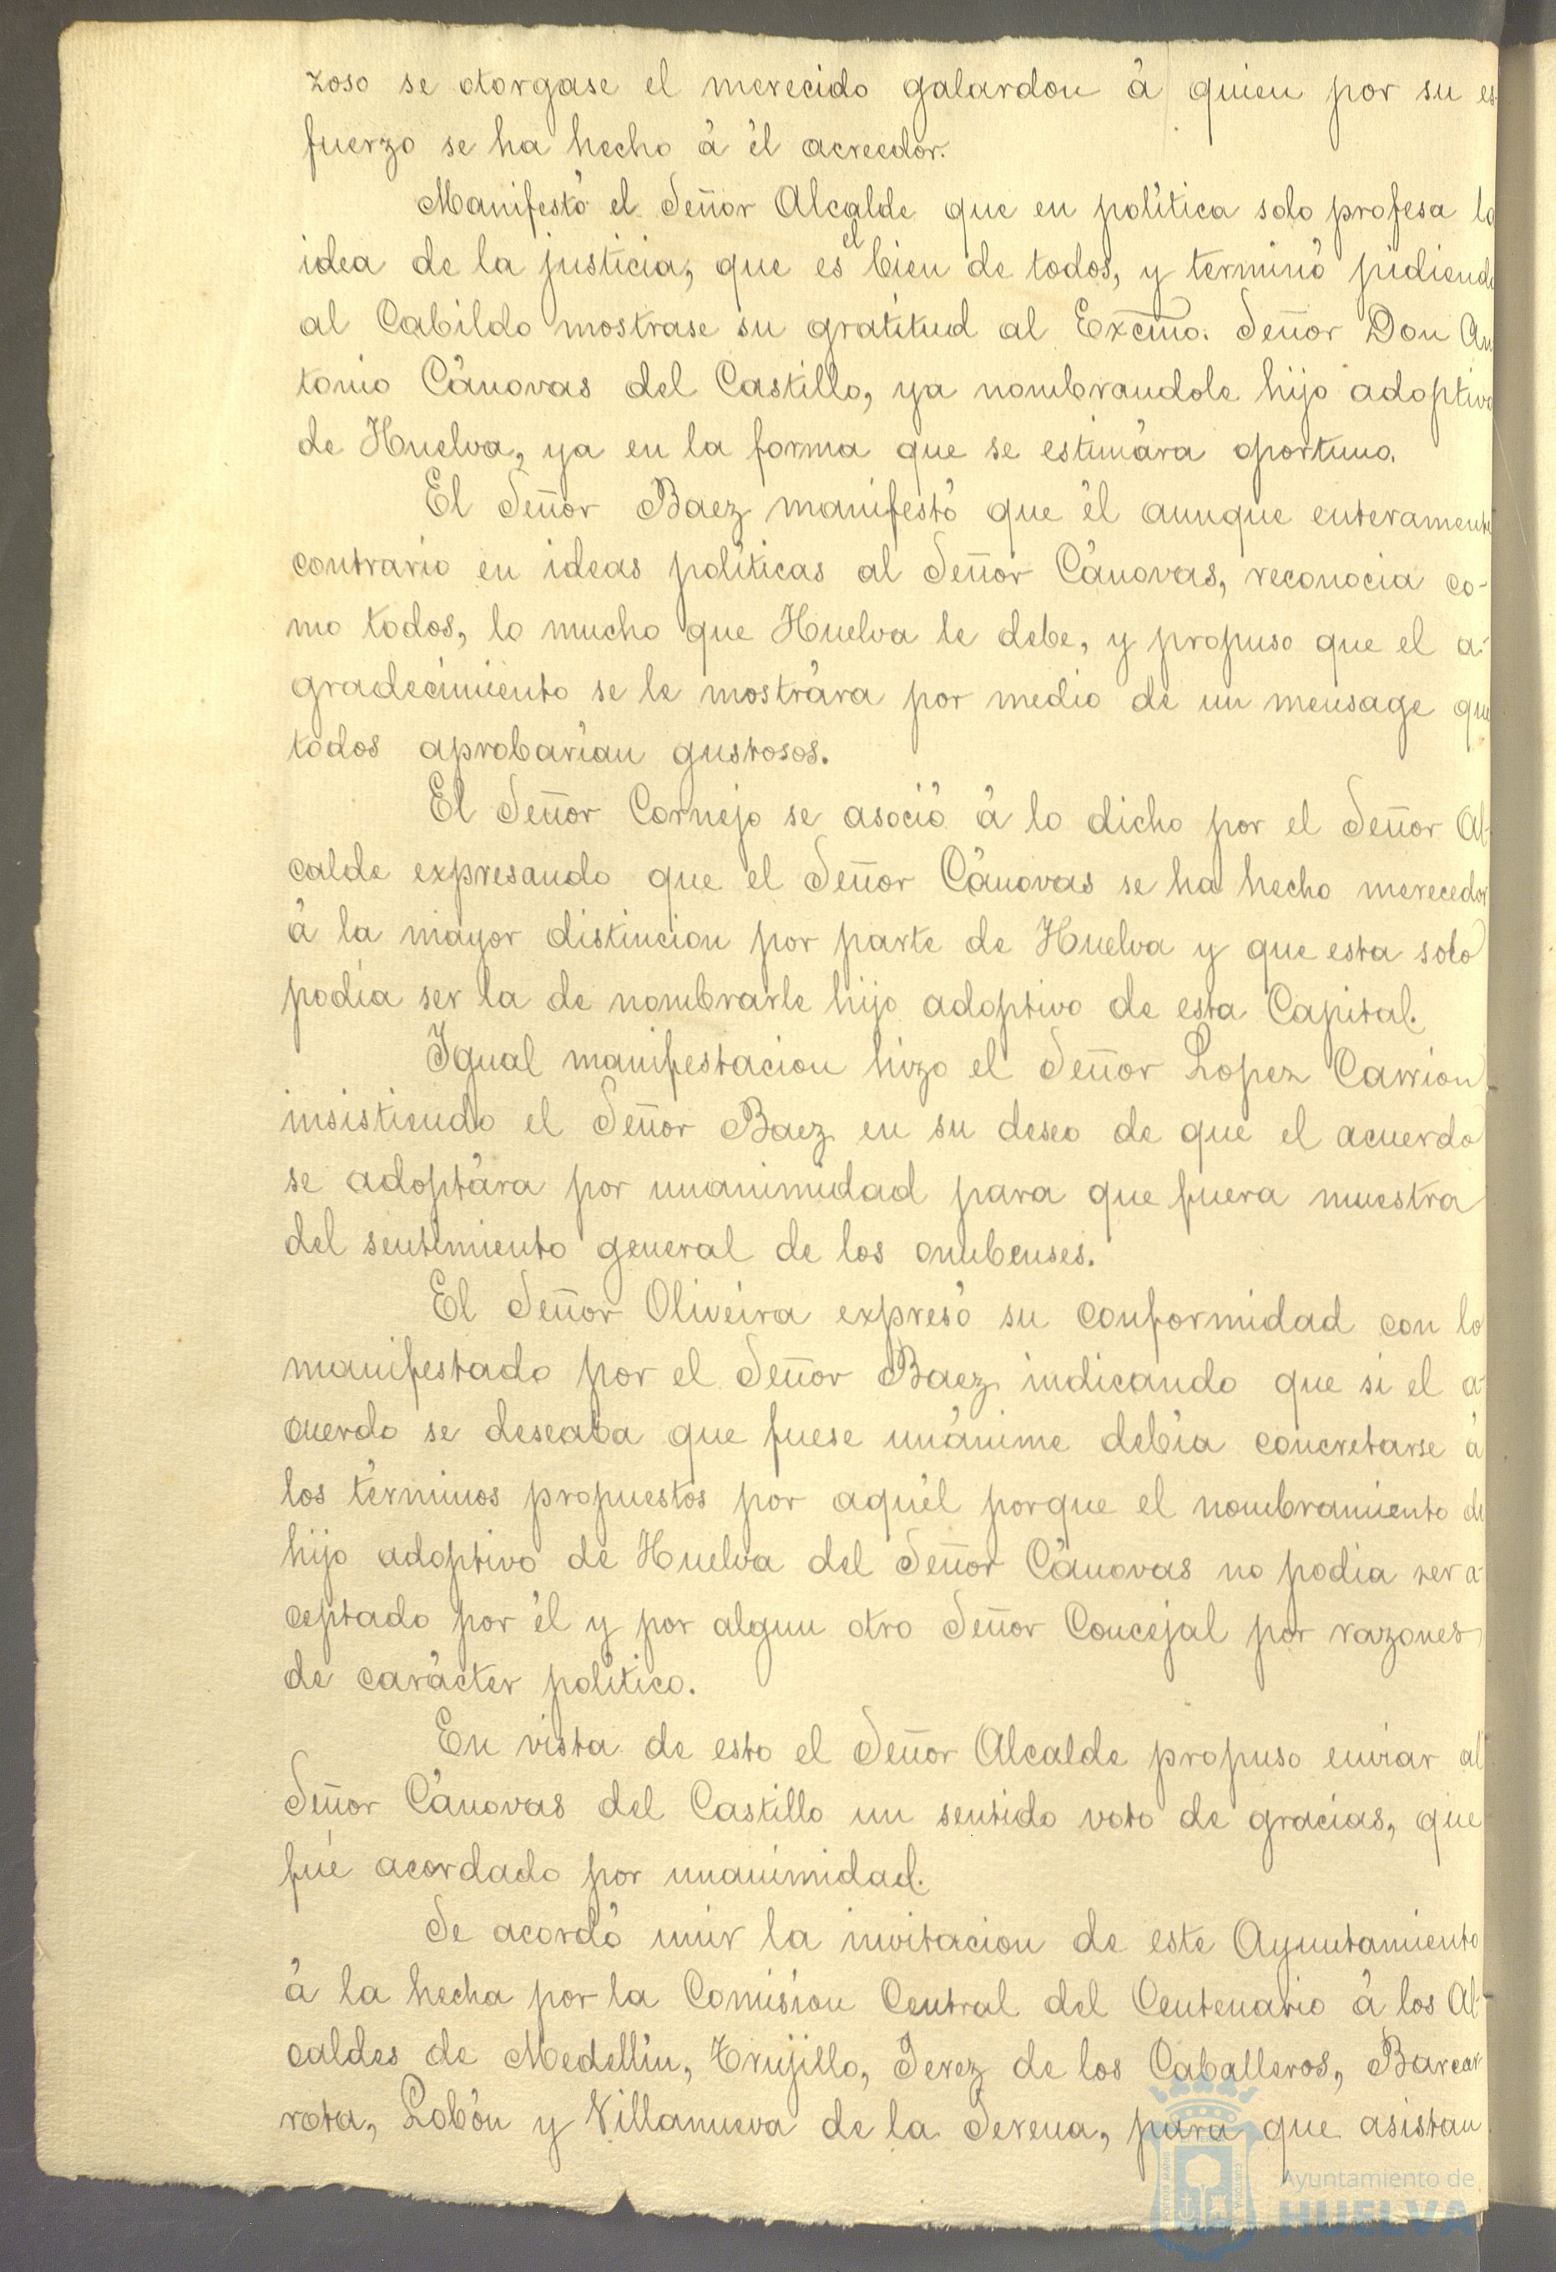 zoso se otorgase el merecido galardon á quien por su es-
fuerzo se ha hecho á él acreedor.
Manifestó el Señor Alcalde que en política solo profesa la
idea de la justicia, que es el bien de todos, y terminó pidiendo
al Cabildo mostrase su gratitud al Excmo. Señor Don An
tonio Cánovas del Castillo, ya nombrandole hijo adoptivo
de Huelva, ya en la forma que se estimára oportuno.
El Señor Baez manifestó que él aunque enteramente
contrario en ideas políticas al Señor Cánovas, reconocia co-
mo todos, lo mucho que Huelva le debe, y propuso que el a-
gradecimiento se le mostrára por medio de un mensage que
todos aprobarían gustosos.
El Señor Cornejo se asoció á lo dicho por el Señor Al-
calde expresando que el Señor Cánovas se ha hecho merecedor
á la mayor distincion por parte de Huelva y que esta solo
podía ser la de nombrarle hijo adoptivo de esta Capital.
Igual manifestacion hizo el Señor Lopez Carrion
insistiendo el Señor Baez en su deseo de que el acuerdo
se adoptára por unanimidad para que fuera muestra
del sentimiento general de los onubenses.
El Señor Oliveira expresó su conformidad con lo
manifestado por el Señor Baez indicando que si el a-
cuerdo se deseaba que fuese unánime debía concretarse á
los términos propuestos por aquél porque el nombramiento de
hijo adoptivo de Huelva del Señor Cánovas no podía ser a-
ceptado por él y por algun otro Señor Concejal por razones
de carácter político.
En vista de esto el Señor Alcalde propuso enviar al
Señor Cánovas del Castillo un sentido voto de gracias, que
fué acordado por unanimidad.
Se acordó unir la invitacion de este Ayuntamiento
á la hecha por la Comision Central del Centenario á los Al-
caldes de Medellín, Trujillo, Jerez de los Caballeros, Barcar
rota, Lobón y Villanueva de la Serena, para que asistan
Ayuntamiento de
HUELVA